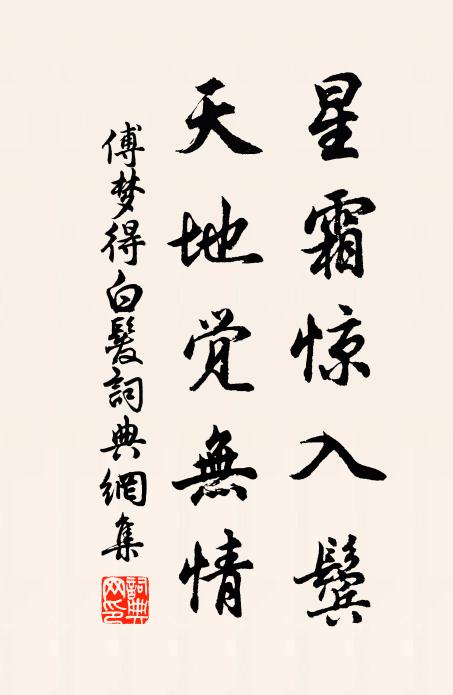 星霜惊入鬓
天地觉無情
傅梦得白髮詞典網集
詞典网印